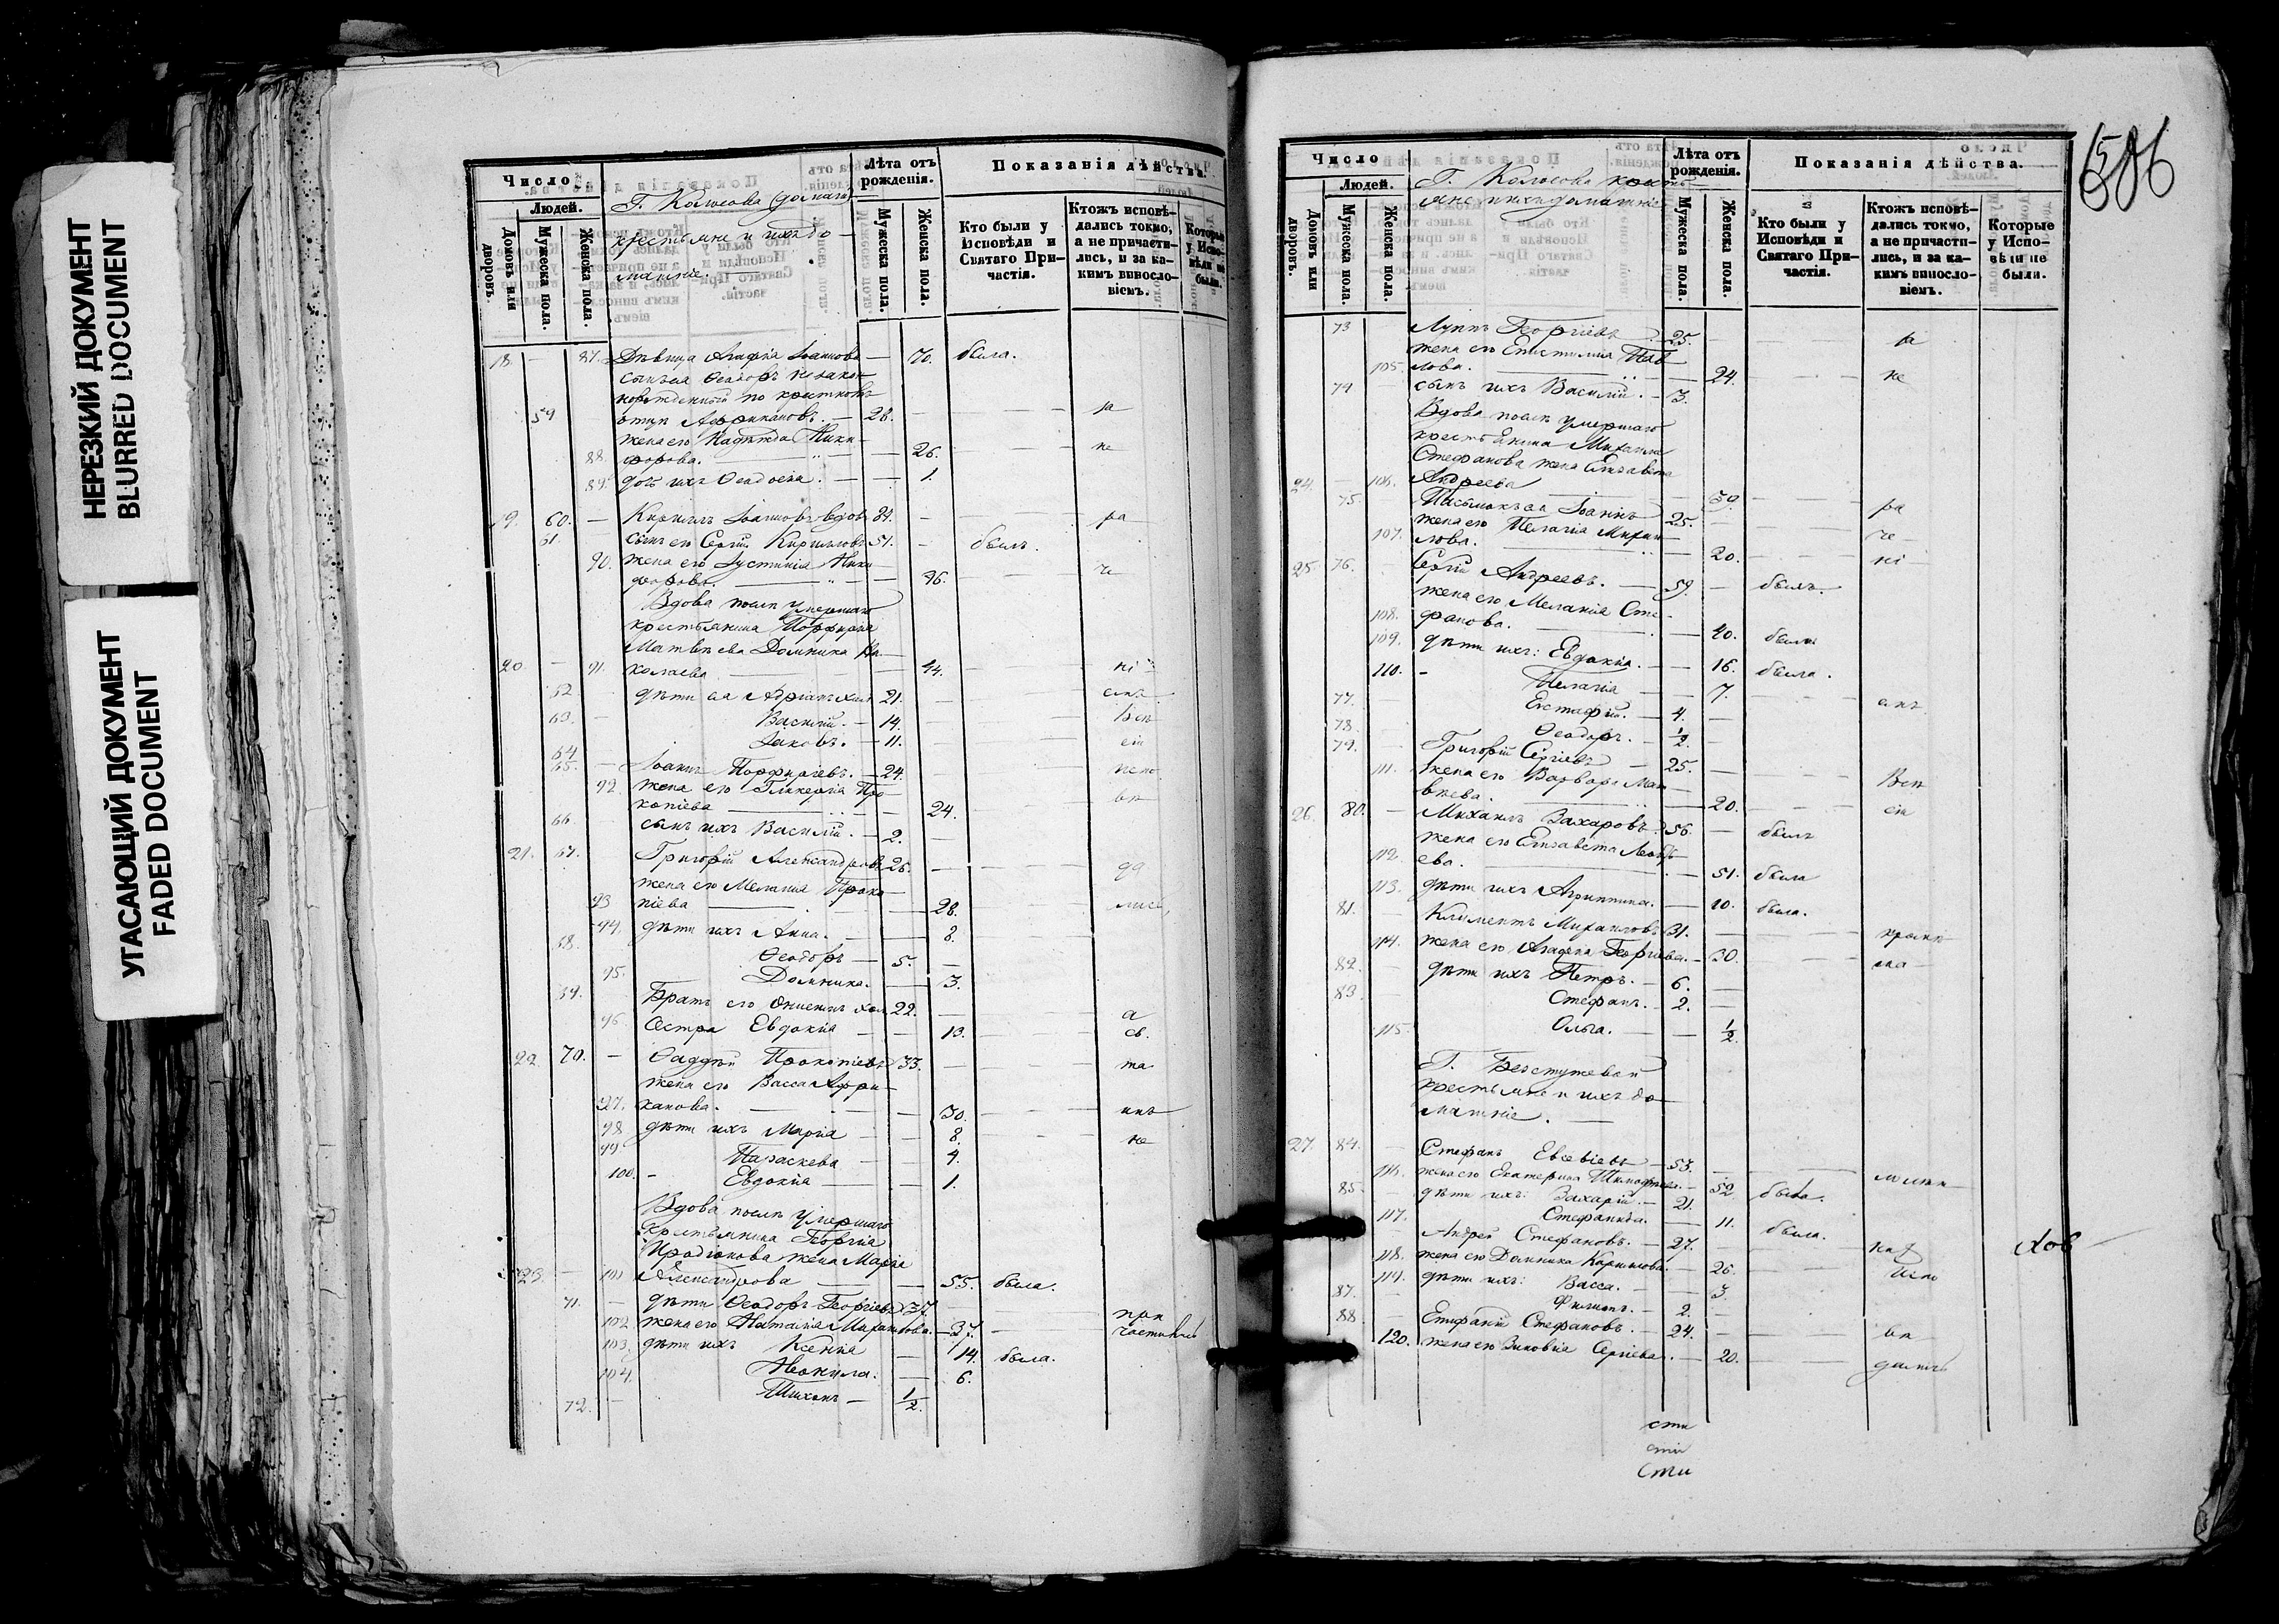 НЕРЕЗКИЙ ДОКУМЕНТ
BLURRED DOCUMENT
УГАСАЮЩИЙ ДОКУМЕНТ
FADED DOCUMENT
Число
Людей.
Домовъ или дворовъ.
Мужеска пола.
Женска пола.
Г. Колюсова
крестьяне и ихъ до-
машніе.
Лѣта отъ рожденія.
Мужеска пола.
Женска пола.
Показанія дѣйства.
Кто были у Исповѣди и Святаго При-частія.
Ктожъ исповѣ-дались токмо, а не причасти-лись, и за ка-кимъ винословіемъ.
Которые у Испо-вѣди не были.
18. — 87. Дѣвица Агафія Іоаннова — 70. была.
сынъ ея Ѳеодоръ незакон-
норожденный по крестному
59 отцу Африкановъ. — 28. — ра
жена его Надежда Ники-
88. форова. — 26. — не
89. дочь ихъ Ѳеодосія. — — 1.
19. 60. — Кириллъ Іоанновъ вдовъ — ра
61. сынъ его Сергій Кирилловъ 51. — былъ.
90. жена его Іустинія Ники-
форова. — 46. — че
Вдова послѣ умершаго
крестьянина Порфирія
Матвѣева Домника Ни-
20 — 91. колаева — 44. — ні
62. дѣти ея Адріанъ хол. 21.
63. — Василій. — 14. — Всѣ
64 Іаковъ. — 11. — сіи
65. — Іоаннъ Порфиріевъ. — 24. — испо
92. жена его Гликерія Про-
копіева — 24. — вѣ
66. сынъ ихъ Василій. — 2.
21. 67. Григорій Александровъ 26. —
жена его Меланія Проко-
93 піева — 28. — лись,
94. дѣти ихъ Анна. — 8.
68. Ѳеодоръ — 5. —
95. Домника. — 3.
69. Братъ его Онисимъ хол. 22. — а
96. Сестра Евдокія — 13. — св.
22 70. — Ѳаддей Прокопіевъ 33. — та
жена его Васса Афри-
97. канова. — 30. — инъ
98 дѣти ихъ Марія — 8. — не
99 Параскева — 4.
100. - Евдокія — 1.
Вдова послѣ умершаго
крестьянина Георгія
Иродіонова жена Марія
23. — 101 Александрова — 55. была.
71. — дѣти Ѳеодоръ Георгіевъ 37. — при
102 жена его Наталія Михайлова. — 37. — частились
103. дѣти ихъ Ксенія — 14. была.
104. Неонила. — 6.
72. — Тихонъ — 1/2.
586
Число
Людей.
Домовъ или дворовъ.
Мужеска пола.
Женска пола.
Г. Колюсова кресть-
яне и ихъ домашніе
Лѣта отъ рожденія.
Мужеска пола.
Женска пола.
Показанія дѣйства.
Кто были у Исповѣди и Святаго При-частія.
Ктожъ исповѣ-дались токмо, а не причасти-лись, и за ка-кимъ винословіемъ.
Которые у Испо-вѣди не были.
73 Луппъ Георгіевъ 25. — ра
жена его Епистимія Пав-
105. лова. — 24. — не
74 сынъ ихъ Василій. — 3.
Вдова послѣ умершаго
крестьянина Михаила
Стефанова жена Елизавета
24. — 106. Андреева — 59. — ра
75. Пасынокъ ея Іоаннъ 25. — че
жена его Пелагія Михай-
107. лова. — 20. — ні
25. 76. — Сергій Андреевъ. — 59. — былъ.
жена его Меланія Сте-
108. фанова. — 40. была
109. дѣти ихъ: Евдокія. — 16. была.
110. - Пелагія — 7.
77. Евстафій. — 4. —
78. Ѳеодоръ. — 1/2. —
79. — Григорій Сергіевъ — 25. — Всѣ
111. жена его Варвара Мат-
вѣева. — 20. — сіи
26. 80. — Михаилъ Захаровъ. 56. — былъ
жена его Елизавета Леонть-
112. ева. — 51. была
113. дѣти ихъ Агриппина. — 10. была.
81. Климентъ Михайловъ 31. —
114. жена его Агафія Георгіева. — 30. —
82. — дѣти ихъ Петръ. — 6. —
83. Стефанъ. — 2. —
115. Ольга. — 1/2
Г. Безстужевой
крестьяне и ихъ до-
машніе.
27. 84. — Стефанъ Евсевіевъ — 53. —
116. жена его Екатерина Тимофеева. — 52. была.
85. — дѣти ихъ: Захарій. — 21.
117. Стефанида. — 11. была.
— Андрей Стефановъ. — 27. —
118. жена его Домника Кириллова. — 26. — испо
119. дѣти ихъ: Васса. — 3.
87. — Филиппъ. — 2.
88. — Епифаній Стефановъ. — 24. — вѣ
120. жена его Зиновія Сергіева. — 20. — дались
сти
сти
сти